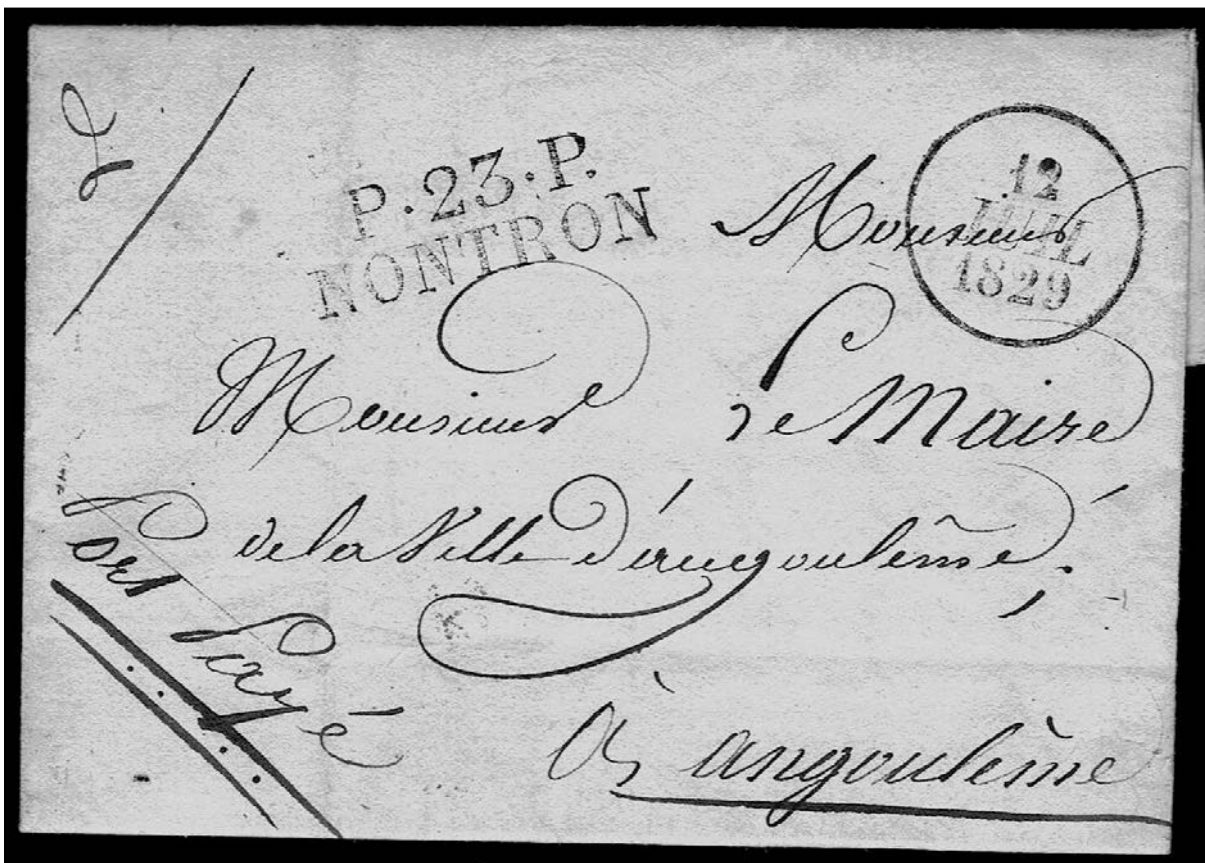 P.23.P.
NONTRON
12
JUIL
1829
Monsieur
Monsieur Le Maire
de la Ville d'angoulême.
Port Payé
à angoulême